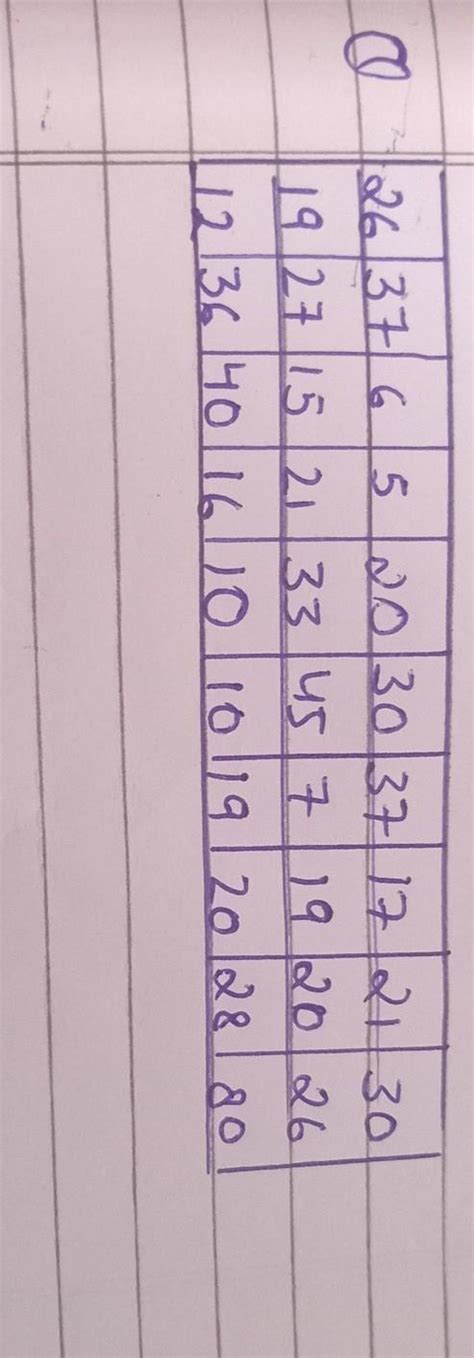 1
26 37 6 5 20 30 37 17 21 30
19 27 15 21 33 45 7 19 20 26
12 36 40 16 10 10 19 20 28 80